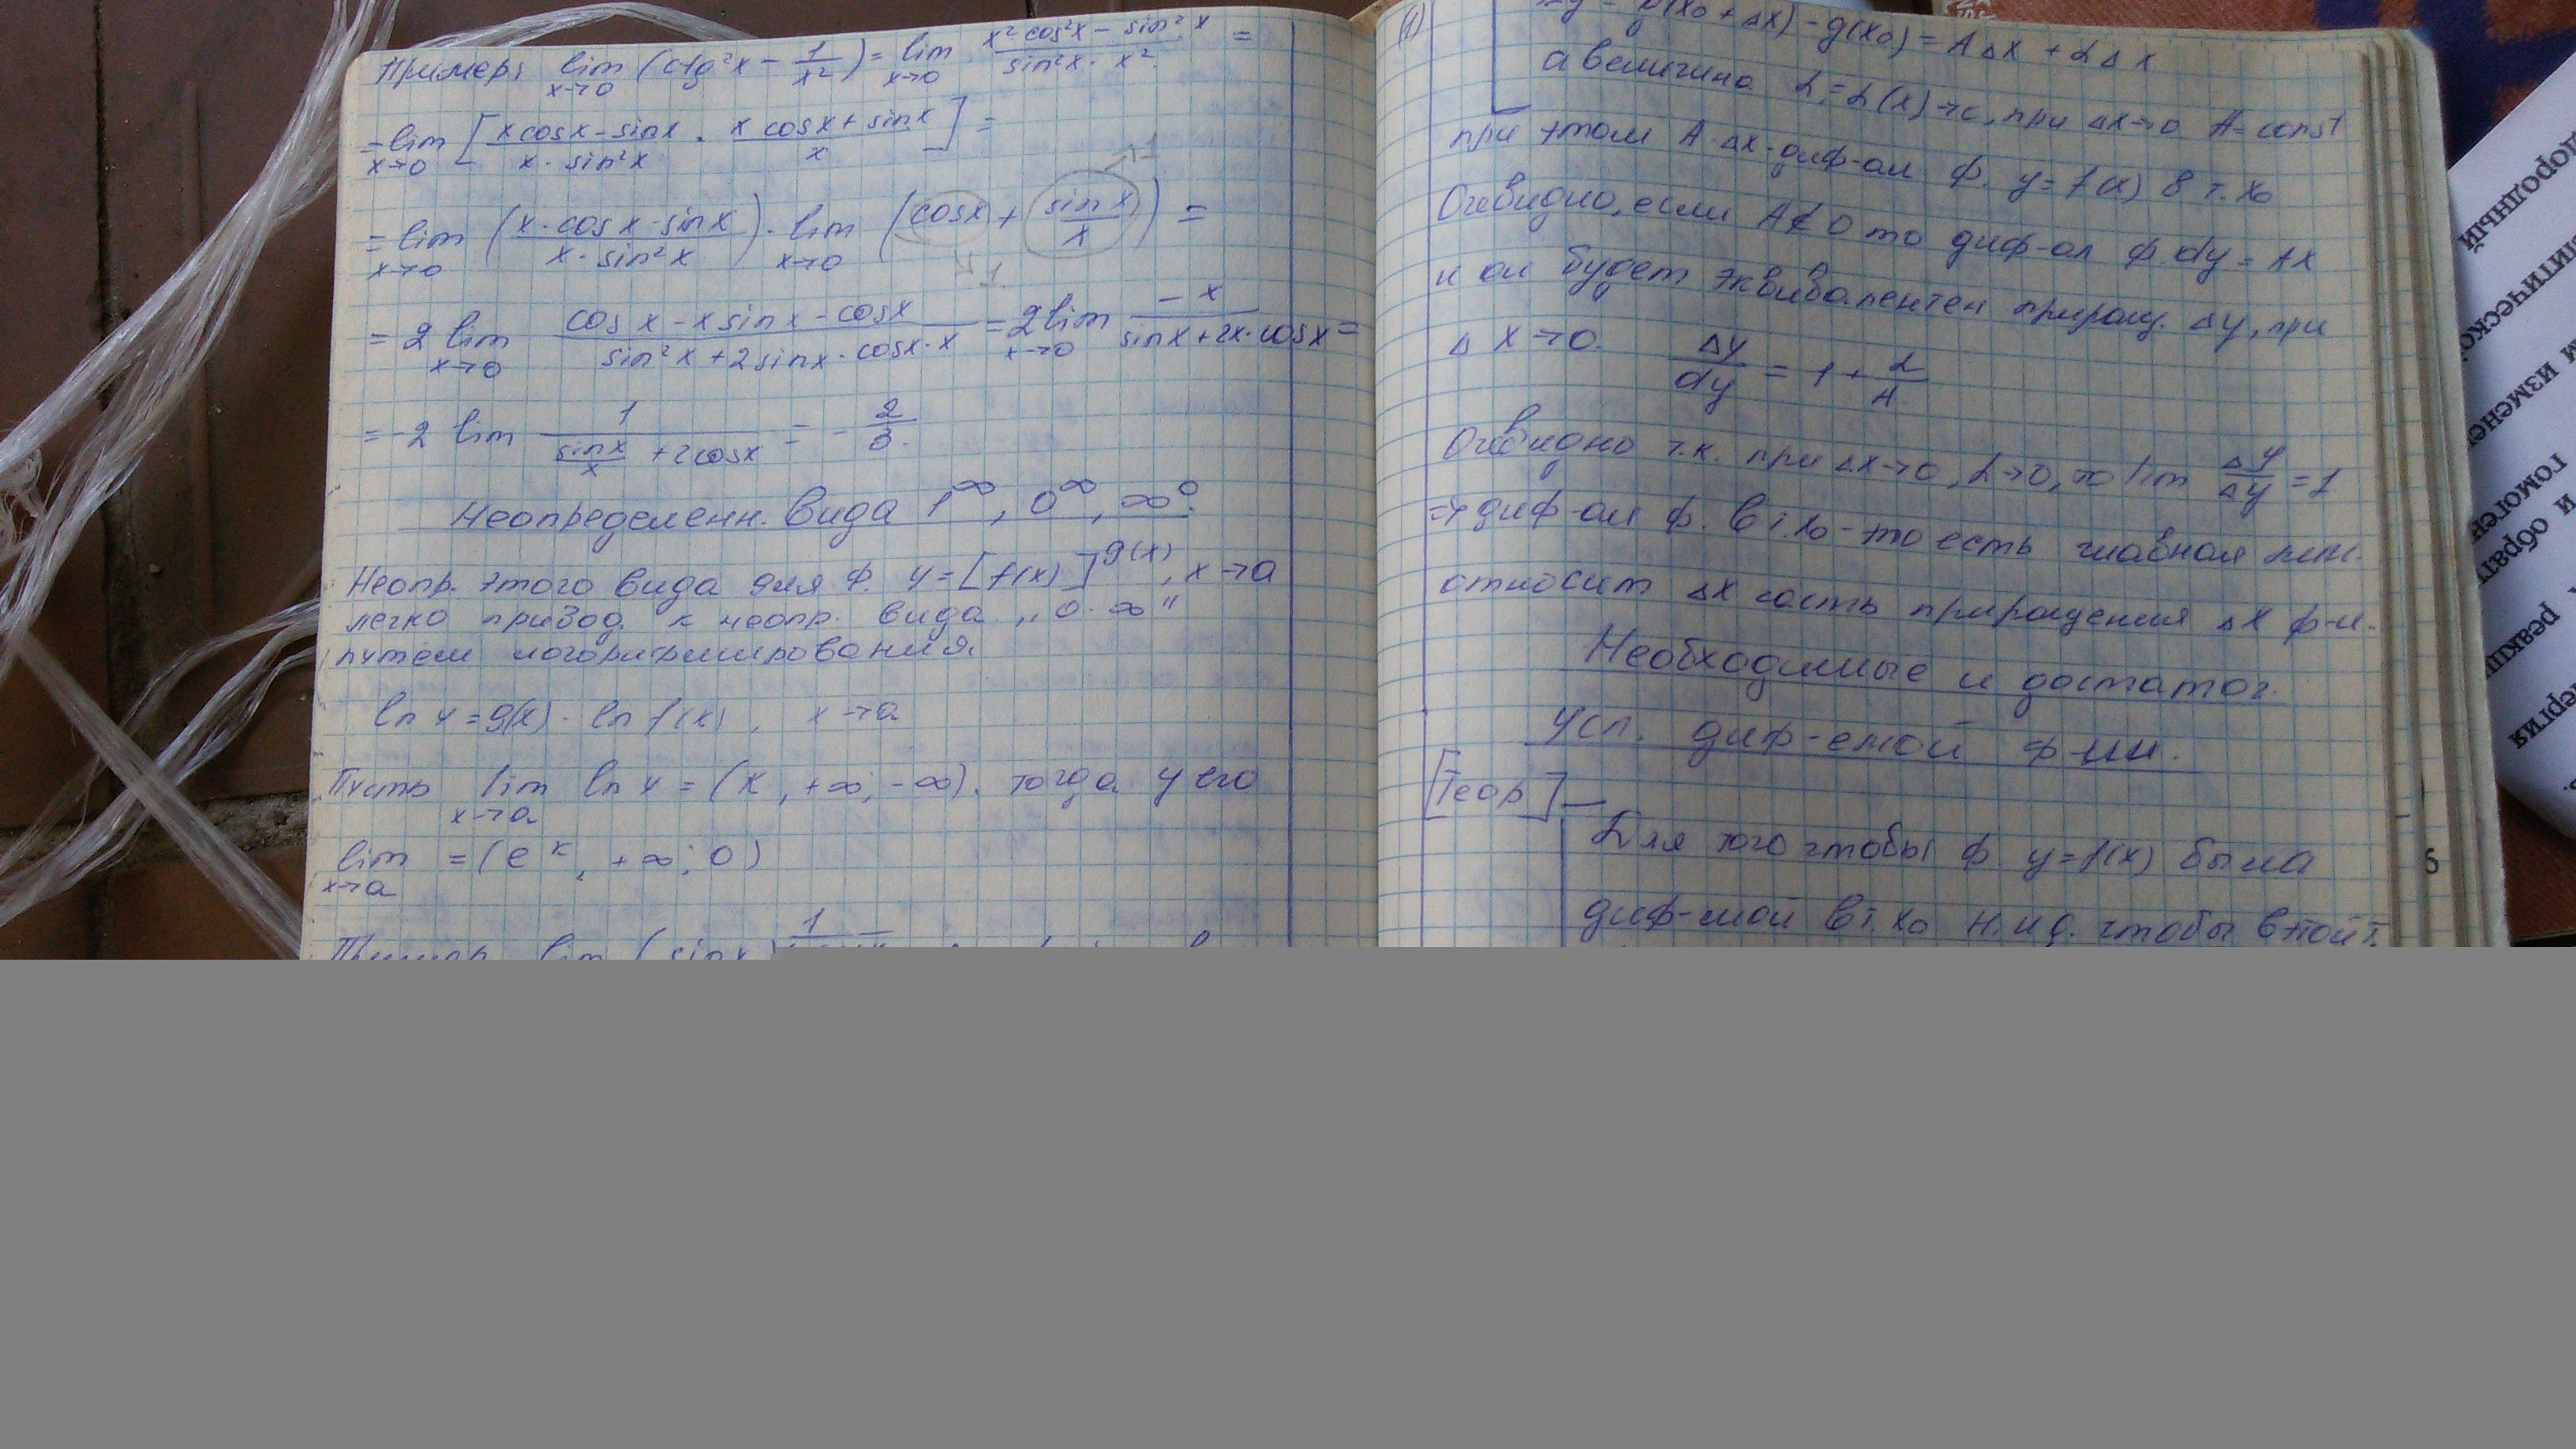 Пример: lim x→0 (ctg²x − 1/x²) = lim x→0 (x² cos²x − sin²x)/(sin²x · x²) =
= lim x→0 [(x cosx − sinx)/(x · sin²x) · (x cosx + sinx)/x] =
= lim x→0 ((x · cosx − sinx)/(x · sin²x)) · lim x→0 (cosx + sinx/x) =
→1
→1
= 2 lim x→0 (cosx − x sinx − cosx)/(sin²x + 2sinx · cosx · x) = 2 lim x→0 −x/(sinx + 2x · cosx) =
= −2 lim 1/(sinx/x + 2cosx) = − 2/3.
Неопределенн. вида 1^∞, 0^∞, ∞^0.
Неопр. этого вида для ф. y = [f(x)]^g(x), x→a
легко привод. к неопр. вида „0·∞"
путем логорифмирования.
ln y = g(x) · ln f(x), x→a
Пусть lim x→a ln y = (к, +∞, −∞). тогда y его
lim x→a = (e^к, +∞; 0)
Пример lim (sinx 1
(x₀ + Δx) − g(x₀) = AΔx + αΔx
а величина α = α(x)→0, при Δx→0 A = const
при этом A·Δx - диф-ал ф. y = f(x) в т. x₀
Очевидно, если A≠0 то диф-ал ф. dy = Ax
и он будет эквивалентен приращ. Δy, при
Δx→0. Δy/dy = 1 + α/A
Очевидно т.к. при Δx→0, α→0, то lim Δy/Δy = 1
⇒ диф-ал ф. в т. x₀ - это есть главная лин.
относит Δx часть приращения Δx ф-и.
Необходимые и достаточ.
усл. диф-емой ф-ии.
[Теор]
Для того чтобы ф. y = f(x) была
диф-мой в т. x₀ н. и д. чтобы в этой т.
6